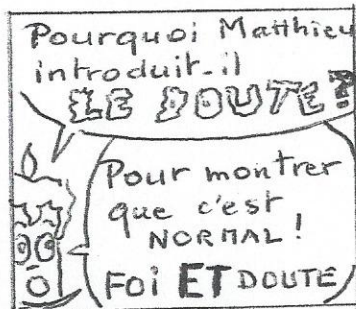 Pourquoi Matthieu
introduit-il
LE DOUTE?
Pour montrer
que c'est
NORMAL!
FOI ET DOUTE